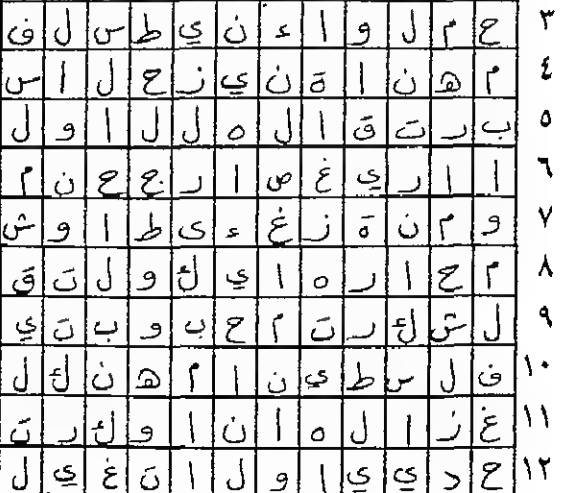 ٣ ح م ل و ا ء ن ي ط س ل ف
٤ م ه ن ا ة ن ي ز ح ل ا س
٥ ب ر ت ق ا ل ه ل ل ا و ل
٦ ا ا ر ي غ ص ا ر ج ح ن م
٧ و م ن ة ز غ ء ى ط ا و ش
٨ م ح ا ر ه ا ي ك و ل ت ق
٩ ل ش ك ر ت م ح ب و ب ت ي
١٠ ف ل س ط ي ن ا م ه ن ك ل
١١ غ ز ا ل ه ا ن ا و ك ر ت
١٢ ح د ي ي ا و ل ا ن غ ي ل